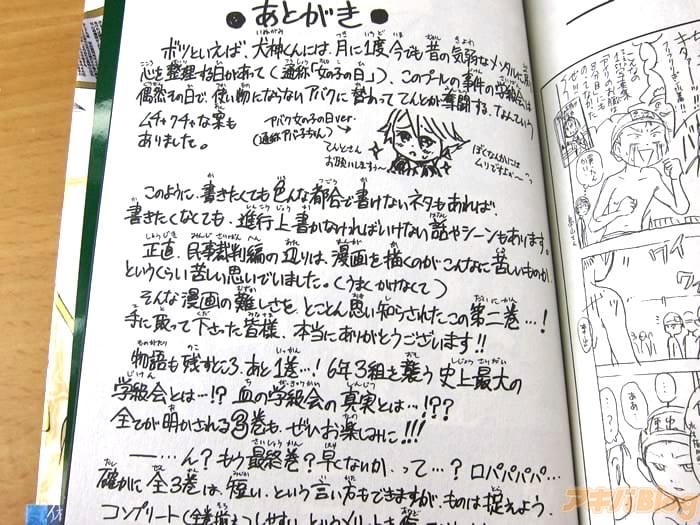 ●あとがき●
ボツといえば、犬神くんには、月に1度今でも昔の気弱なメンタルに
心を整理する日があって(通称「女の子の日」)、このプールの事件の学級会は
偶然その日で、使い物にならないアバクに替わっててんとが奮闘する、なんていう
ムチャクチャな案も
ありました。
アバク女の子の日ver.
(通称アバ子ちゃん)
てんとさん
お願いします〜
ぼくなんかには
ムリですよぉ〜っ
このように、書きたくても色んな都合で書けないネタもあれば、
書きたくなくても、進行上書かなければいけない話やシーンもあります。
正直、民事裁判編の辺りは、漫画を描くのがこんなに苦しいものか、
というくらい苦しい思いでいました。(うまくかけなくて)
そんな漫画の難しさを、とことん思い知らされたこの第二巻…!
手に取って下さった皆様、本当にありがとうございます!!
物語も残すところ、あと1巻…! 6年3組を襲う史上最大の
学級会とは…!? 血の学級会の真実とは…!??
全てが明かされる③巻も、ぜひお楽しみに!!!
―…ん?もう最終巻?早くないか、って…?ロパパパパ…
確かに全3巻は、短い、という言い方もできますが、ものは捉えよう。
コンプリート(全巻揃え)しやすい、というメリットを
アキバBlog